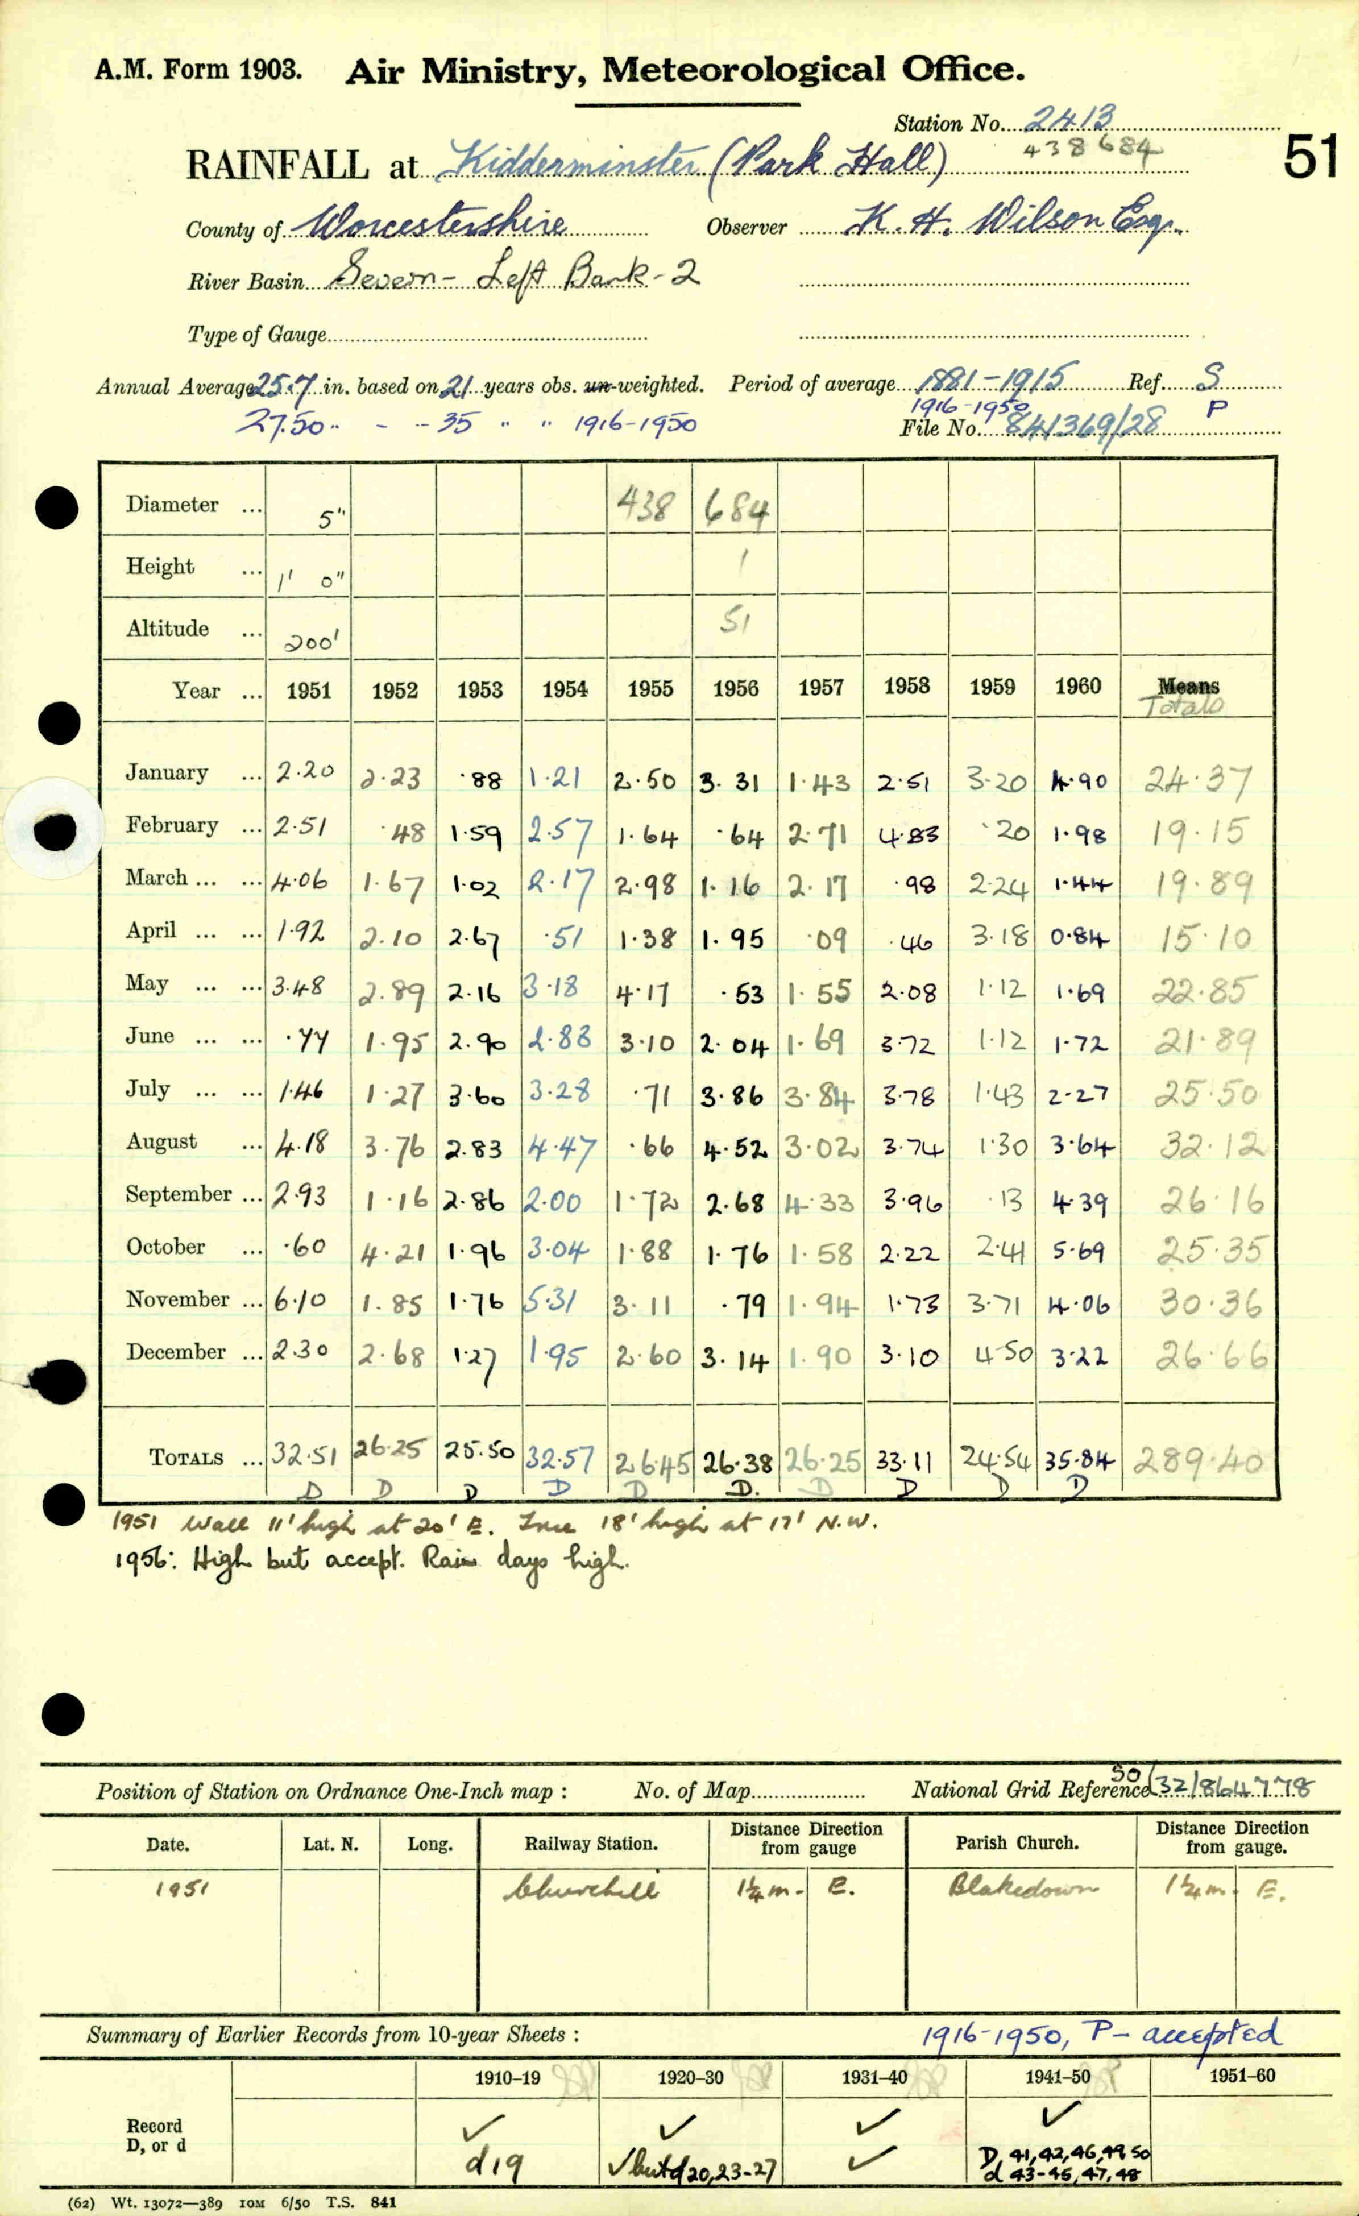 A.M. Form 1903. Air Ministry, Meteorological Office.
Station No. 2413
438684
51
RAINFALL at Kidderminster (Park Hall)
County of Worcestershire Observer K. H. Wilson Esq.
River Basin Severn - Left Bank - 2
Type of Gauge
Annual Average 25.7 in. based on 21 years obs. un-weighted. Period of average 1881-1915 Ref. S
27.50 " - - 35 " " 1916-1950 1916-1950 P
File No. 841369/28
Diameter ... 5" 438 684
Height ... 1' 0" 1
Altitude ... 200' 51
Year ... 1951 1952 1953 1954 1955 1956 1957 1958 1959 1960 Means
Totals
January ... 2.20 2.23 .88 1.21 2.50 3.31 1.43 2.51 3.20 4.90 24.37
February ... 2.51 .48 1.59 2.57 1.64 .64 2.71 4.83 .20 1.98 19.15
March ... ... 4.06 1.67 1.02 2.17 2.98 1.16 2.17 .98 2.24 1.44 19.89
April ... ... 1.92 2.10 2.67 .51 1.38 1.95 .09 .46 3.18 0.84 15.10
May ... ... 3.48 2.89 2.16 3.18 4.17 .53 1.55 2.08 1.12 1.69 22.85
June ... ... .77 1.95 2.90 2.88 3.10 2.04 1.69 3.72 1.12 1.72 21.89
July ... ... 1.46 1.27 3.60 3.28 .71 3.86 3.84 3.78 1.43 2.27 25.50
August ... 4.18 3.76 2.83 4.47 .66 4.52 3.02 3.74 1.30 3.64 32.12
September ... 2.93 1.16 2.86 2.00 1.72 2.68 4.33 3.96 .13 4.39 26.16
October ... .60 4.21 1.96 3.04 1.88 1.76 1.58 2.22 2.41 5.69 25.35
November ... 6.10 1.85 1.76 5.31 3.11 .79 1.94 1.73 3.71 4.06 30.36
December ... 2.30 2.68 1.27 1.95 2.60 3.14 1.90 3.10 4.50 3.22 26.66
TOTALS ... 32.51 26.25 25.50 32.57 26.45 26.38 26.25 33.11 24.54 35.84 289.40
D D D D D D. D D D D
1951 Wall 11' high at 20' E. Tree 18' high at 17' N.W.
1956: High but accept. Rain days high.
Position of Station on Ordnance One-Inch map : No. of Map National Grid Reference SO/32/864778
Date. Lat. N. Long. Railway Station. Distance Direction from gauge Parish Church. Distance Direction from gauge.
1951 Churchill 1¼ m. E. Blakedown 1¼ m. E.
Summary of Earlier Records from 10-year Sheets : 1916-1950, P - accepted
1910-19 1920-30 1931-40 1941-50 1951-60
Record ✓ ✓ ✓ ✓
D, or d d19 ✓ but d20,23-27 ✓ D 41,42,46,49 50
d 43-45,47,48
(62) Wt. 13072—389 10M 6/50 T.S. 841